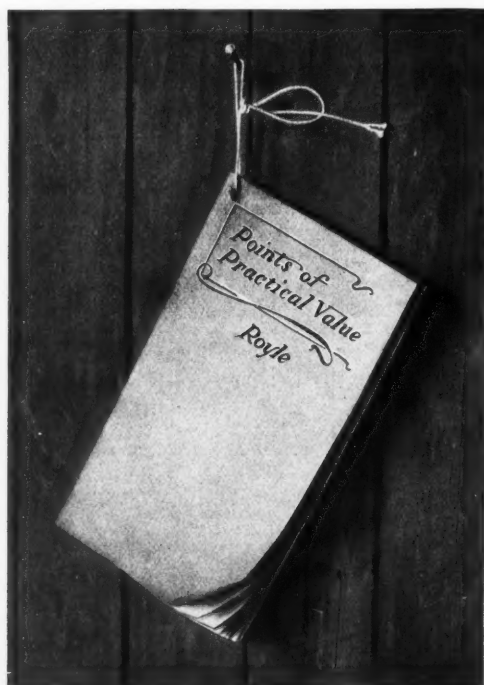 Points of
Practical Value
Royle